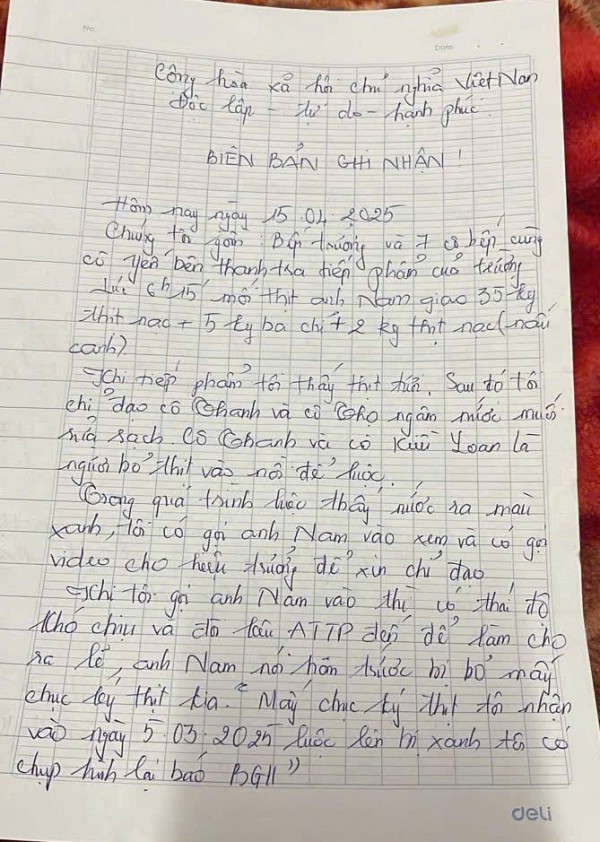 No.
Date
Cộng hòa xã hội chủ nghĩa Việt Nam
Độc lập - tự do - hạnh phúc
BIÊN BẢN GHI NHẬN !
Hôm nay ngày 15.04.2025
Chúng tôi gồm: Bếp trưởng và 7 cô bếp cùng
cô yến bên thanh tra tiếp phẩm của trường
Lúc 6h15 mối thịt anh Nam giao 35 kg
thịt nạc + 5 kg ba chỉ + 2 kg thịt nạc (nấu
canh).
Khi tiếp phẩm tôi thấy thịt tươi. Sau đó tôi
chỉ đạo cô Thanh và cô Thọ ngâm nước muối
rửa sạch. Cô Thanh và cô Kiều Loan là
người bỏ thịt vào nồi để luộc.
Trong quá trình luộc thấy nước ra màu
xanh, tôi có gọi anh Nam vào xem và có gọi
video cho hiệu trưởng để xin chỉ đạo
Khi tôi gọi anh Nam vào thì có thái độ
khó chịu và đòi ATTP đến để làm cho
ra lẽ, anh Nam nói hôm trước bị bỏ mấy
chục ký thịt kia. " Mấy chục ký thịt tôi nhận
vào ngày 5.03.2025 luộc lên bị xanh tôi có
chụp hình lại báo BGH"
deli